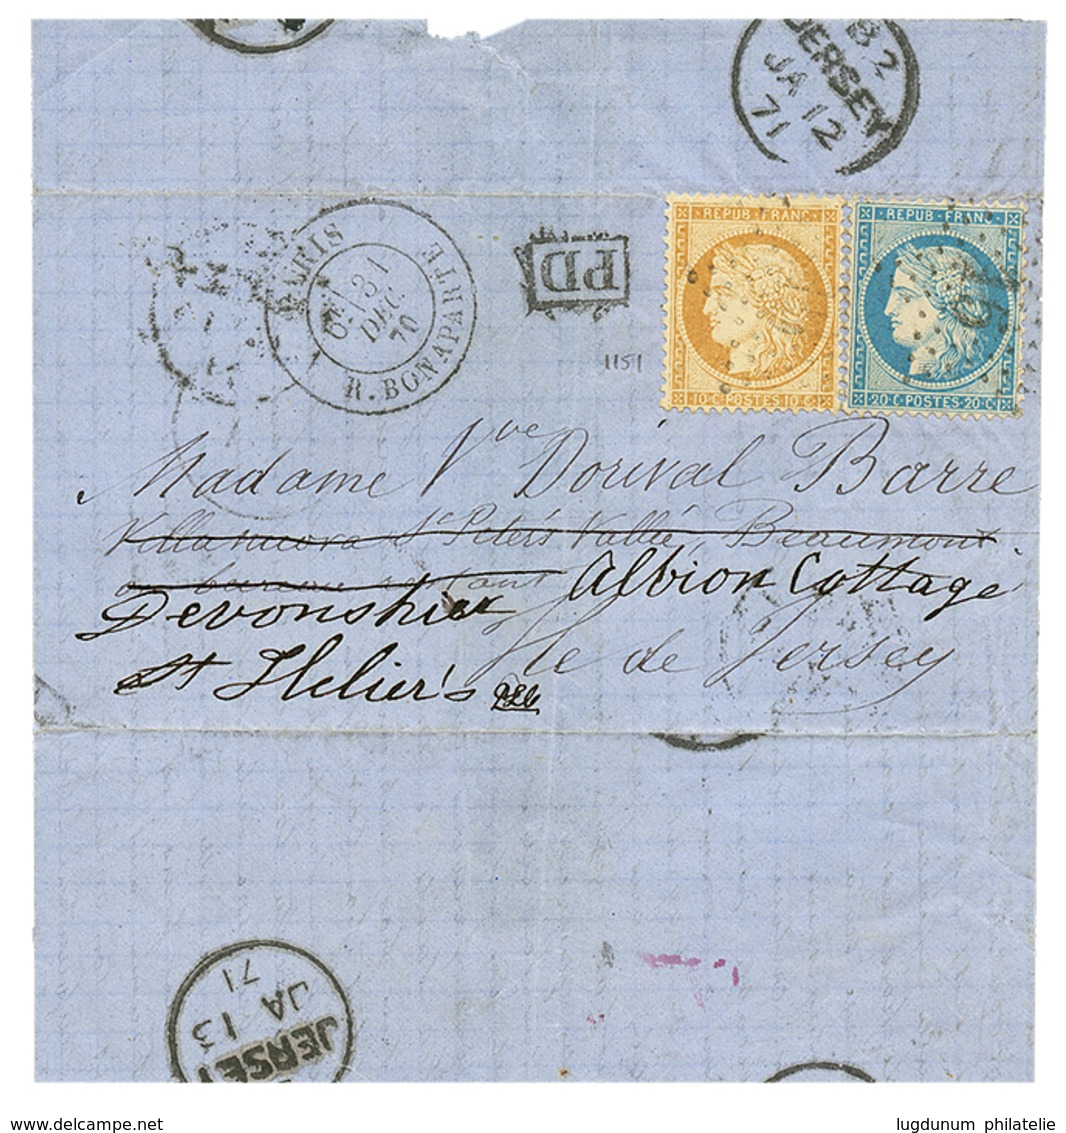 B2
JERSEY
JA 12
71
PARIS
31
DEC.
70
R. BONAPARTE
PD
1151
REPUB·FRANC
10·C·POSTES·10·C
REPUB·FRANC
20·C·POSTES·20·C
Madame Vve Dorival Barre
Villa nuova St Peter's Vallée, Beaumont
Devonshier Albion Cottage
Ile de Jersey
St Helier's
JERSEY
JA 13
71
www.delcampe.net
lugdunum philatelie